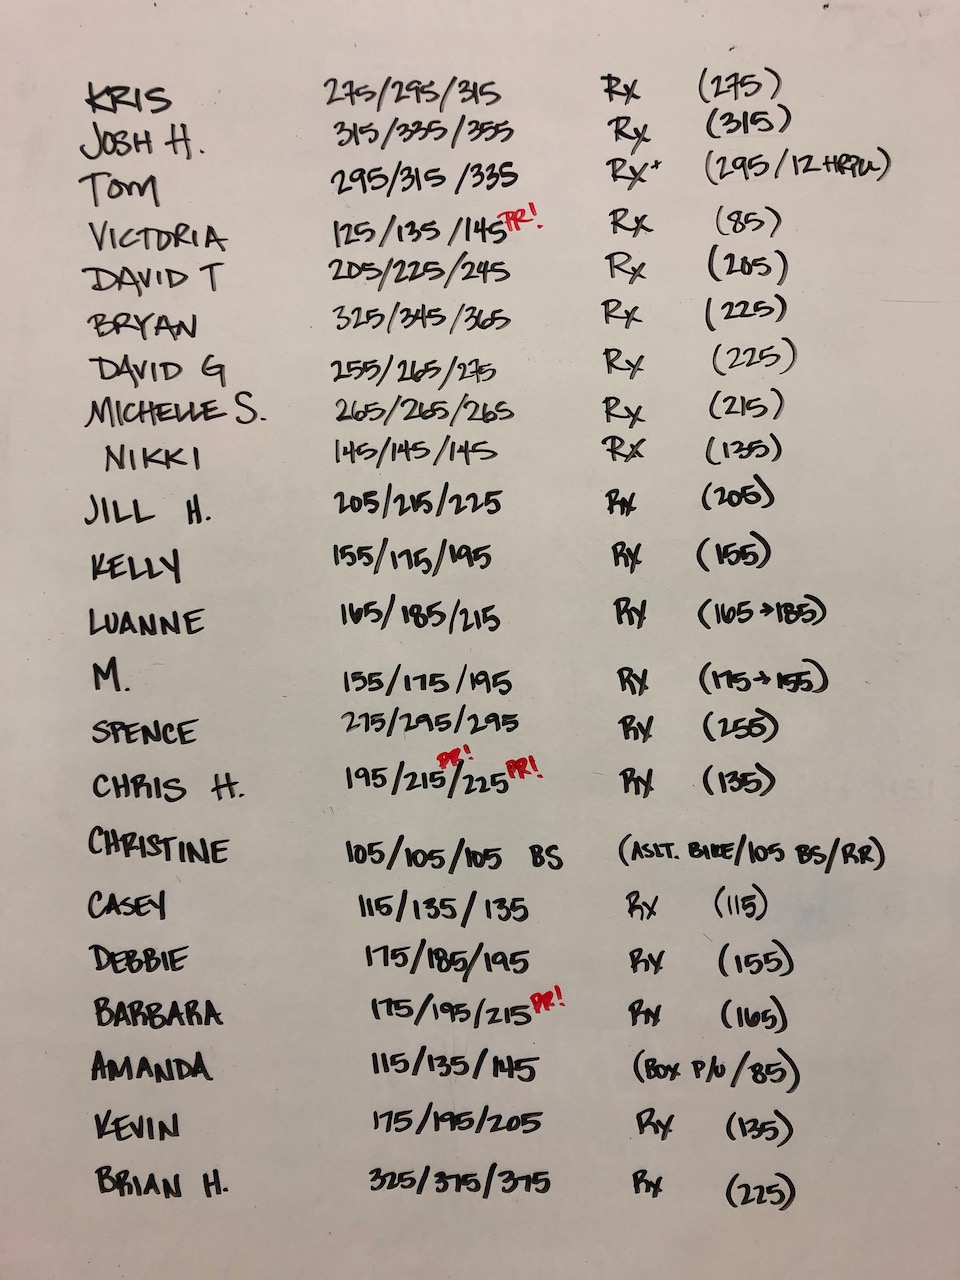 KRIS 275/295/315 Rx (275)
JOSH H. 315/335/355 Rx (315)
TOM 295/315/335 Rx+ (295/12 HRPU)
VICTORIA 125/135/145 PR! Rx (85)
DAVID T 205/225/245 Rx (205)
BRYAN 325/345/365 Rx (225)
DAVID G 255/265/275 Rx (225)
MICHELLE S. 265/265/265 Rx (215)
NIKKI 145/145/145 Rx (135)
JILL H. 205/215/225 Rx (205)
KELLY 155/175/195 Rx (155)
LUANNE 165/185/215 Rx (165→185)
M. 155/175/195 Rx (175→155)
SPENCE 275/295/295 Rx (255)
CHRIS H. 195/215 PR!/225 PR! Rx (135)
CHRISTINE 105/105/105 BS (ASLT. BIKE/105 BS/RR)
CASEY 115/135/135 Rx (115)
DEBBIE 175/185/195 Rx (155)
BARBARA 175/195/215 PR! Rx (165)
AMANDA 115/135/145 (BOX P/U/85)
KEVIN 175/195/205 Rx (135)
BRIAN H. 325/375/375 Rx (225)